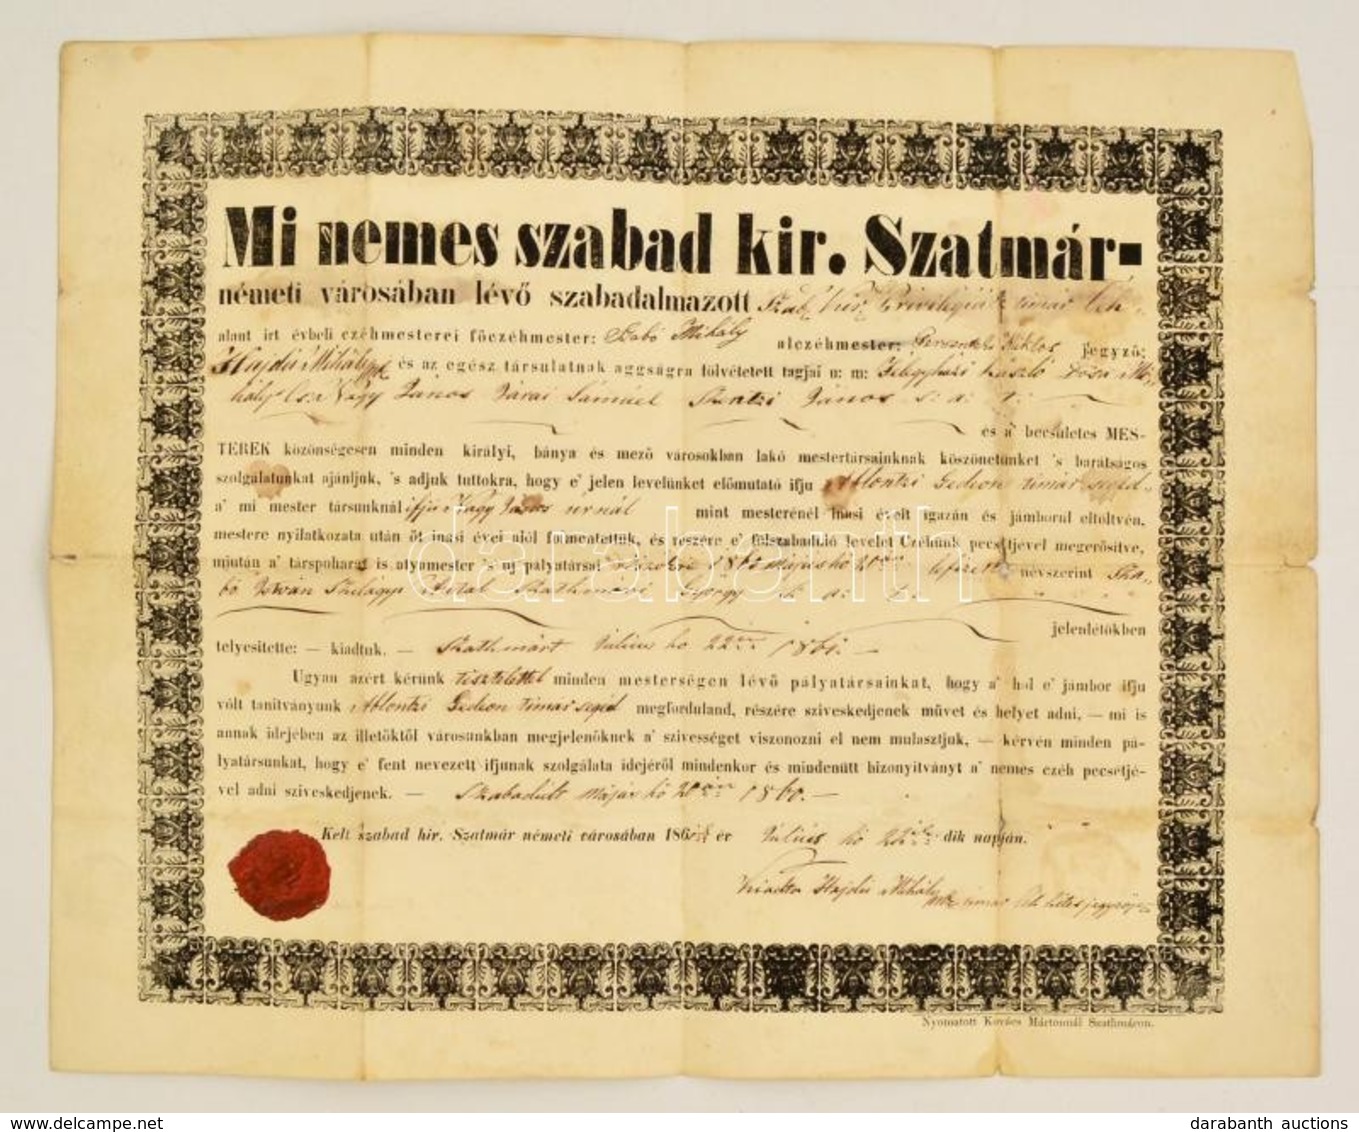 Mi nemes szabad kir. Szatmár-
németi városában lévő szabadalmazott
alant irt évbeli czéhmesterei főczéhmester: Szabó Mihály alczéhmester: Miklos jegyző:
Hajdu Mihály és az egész társulatnak aggságra fölvétetett tagjai u: m: László
Nagy János Várai Sámuel János s. a. t.
és a' becsületes MES-
TEREK közönségesen minden királyi, bánya és mező városokban lakó mestertársainknak köszönetünket 's barátságos
szolgálatunkat ajánljuk, 's adjuk tuttokra, hogy e' jelen levelünket előmutató ifju Ablontzi Gedeon timár segéd
a' mi mester társunknál ifju Nagy János úrnál mint mesterénél inasi éveit igazán és jámborúl eltöltvén,
mestere nyilatkozata után öt inasi évei alól fölmentettük, és részére e' fölszabadító levelet Czéhünk pecsétjével megerősítve,
miután a' társpoharat is atyamester 's uj pályatársai részökre 1860 május hó 20 névszerint Sza-
bó István Szilágyi Antal Szathmári György s. a. t.
jelenlétökben
telyesitette: — kiadtuk. — Szathmárt Július hó 22 1861. —
Ugyan azért kérünk tisztelettel minden mesterségen lévő pályatársainkat, hogy a' hol e' jámbor ifju
vólt tanítványunk Ablontzi Gedeon timár segéd megforduland, részére sziveskedjenek művet és helyet adni, — mi is
annak idejében az illetőktől városunkban megjelenőknek a' szivességet viszonozni el nem mulasztjuk, — kérvén minden pá-
lyatársunkat, hogy e' fent nevezett ifjunak szolgálata idejéről mindenkor és mindenütt bizonyitványt a' nemes czéh pecsetjé-
vel adni sziveskedjenek. — Szabadúlt május hó 20án 1860. —
Kelt szabad kir. Szatmár németi városában 186 év Július hó 22 dik napján.
Kiadta Hajdu Mihály
Nyomatott Kovács Mártonnál Szathmáron.
darabanth
darabanth auctions